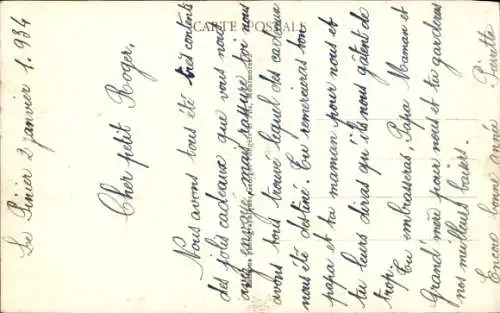 CARTE POSTALE
Le Pinier 2 janvier 1.934
Cher petit Roger,
Nous avons tous été très contents
des jolis cadeaux que vous nous
avez envoyés, mais rassure toi nous
avons tous trouvé lequel des cadeaux
nous été destiné. Tu remercieras ton
papa et ta maman pour nous et
tu leurs diras qu'ils nous gâtent de
trop.
Tu embrasseras, Papa Maman et
Grand'mère pour nous et tu garderas
nos meilleurs baisers.
Encore bonne année Pierrette